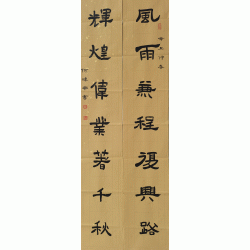 風雨兼程復興路
輝煌偉業著千秋